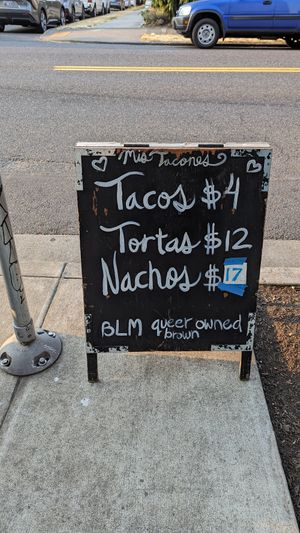 Mis Tacones
Tacos $4
Tortas $12
Nachos $17
BLM queer owned
brown